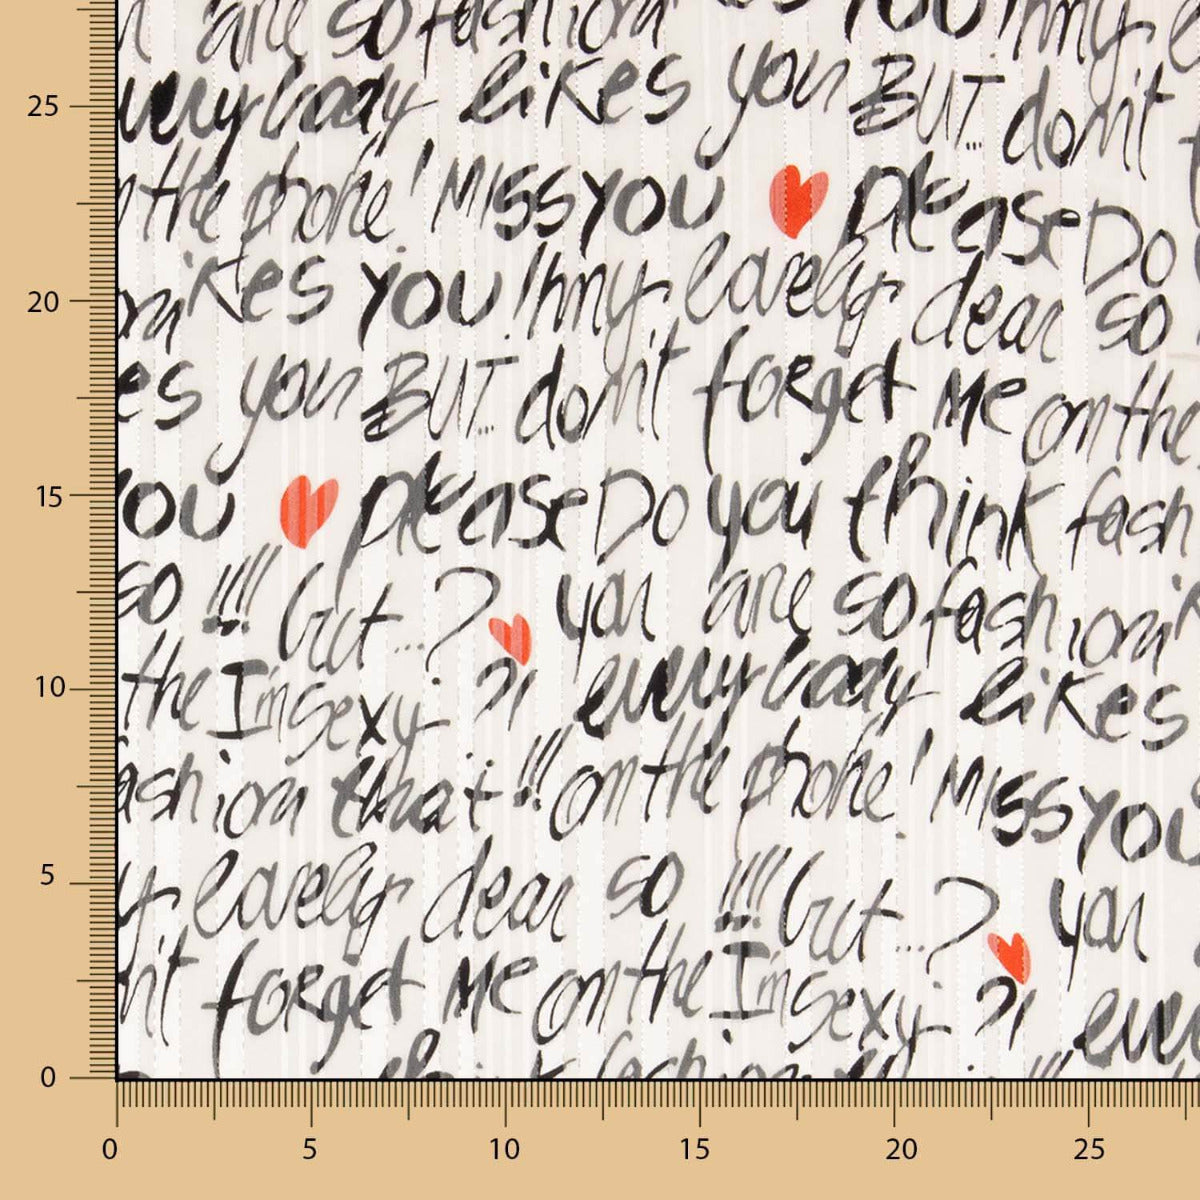 are so fashion es YOU! my l
everybody likes you BUT... don't
on the phone! MISS YOU please Do
kes you! my lovely dear so
es you BUT... don't forget Me on the
YOU please Do you think fash
so !!! but ...? you are so fashion
the I'm sexy ?! everybody likes
fashion that !!! on the phone! MISS YOU
y lovely dear so !!! but ...? you
n't forget Me on the I'm sexy ?! every
think fashion
25
20
15
10
5
0
0 5 10 15 20 25